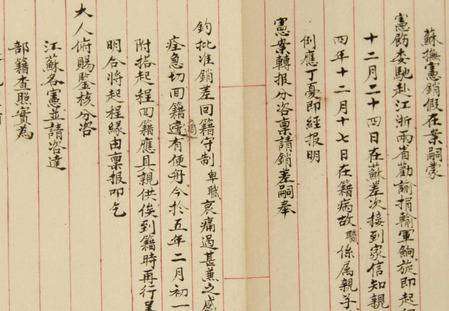 蘇撫憲銷假在案嗣蒙
憲飭委馳赴江浙兩省勸諭捐輸軍餉旋即起行
十二月二十四日在蘇差次接到家信知親
四年十二月十七日在籍病故職係屬親子
例應丁憂即經報明
憲案轉报分咨稟請銷差嗣奉
鈞批准銷差回籍守制卑職哀痛過甚兼之感
痊急切回籍適有便舟今於五年二月初一
附搭起程回籍應具親供俟到籍時再行呈
明合將起程緣由稟报叩乞
大人俯賜鑒核分咨
江蘇各憲並請咨達
部籍查照實為